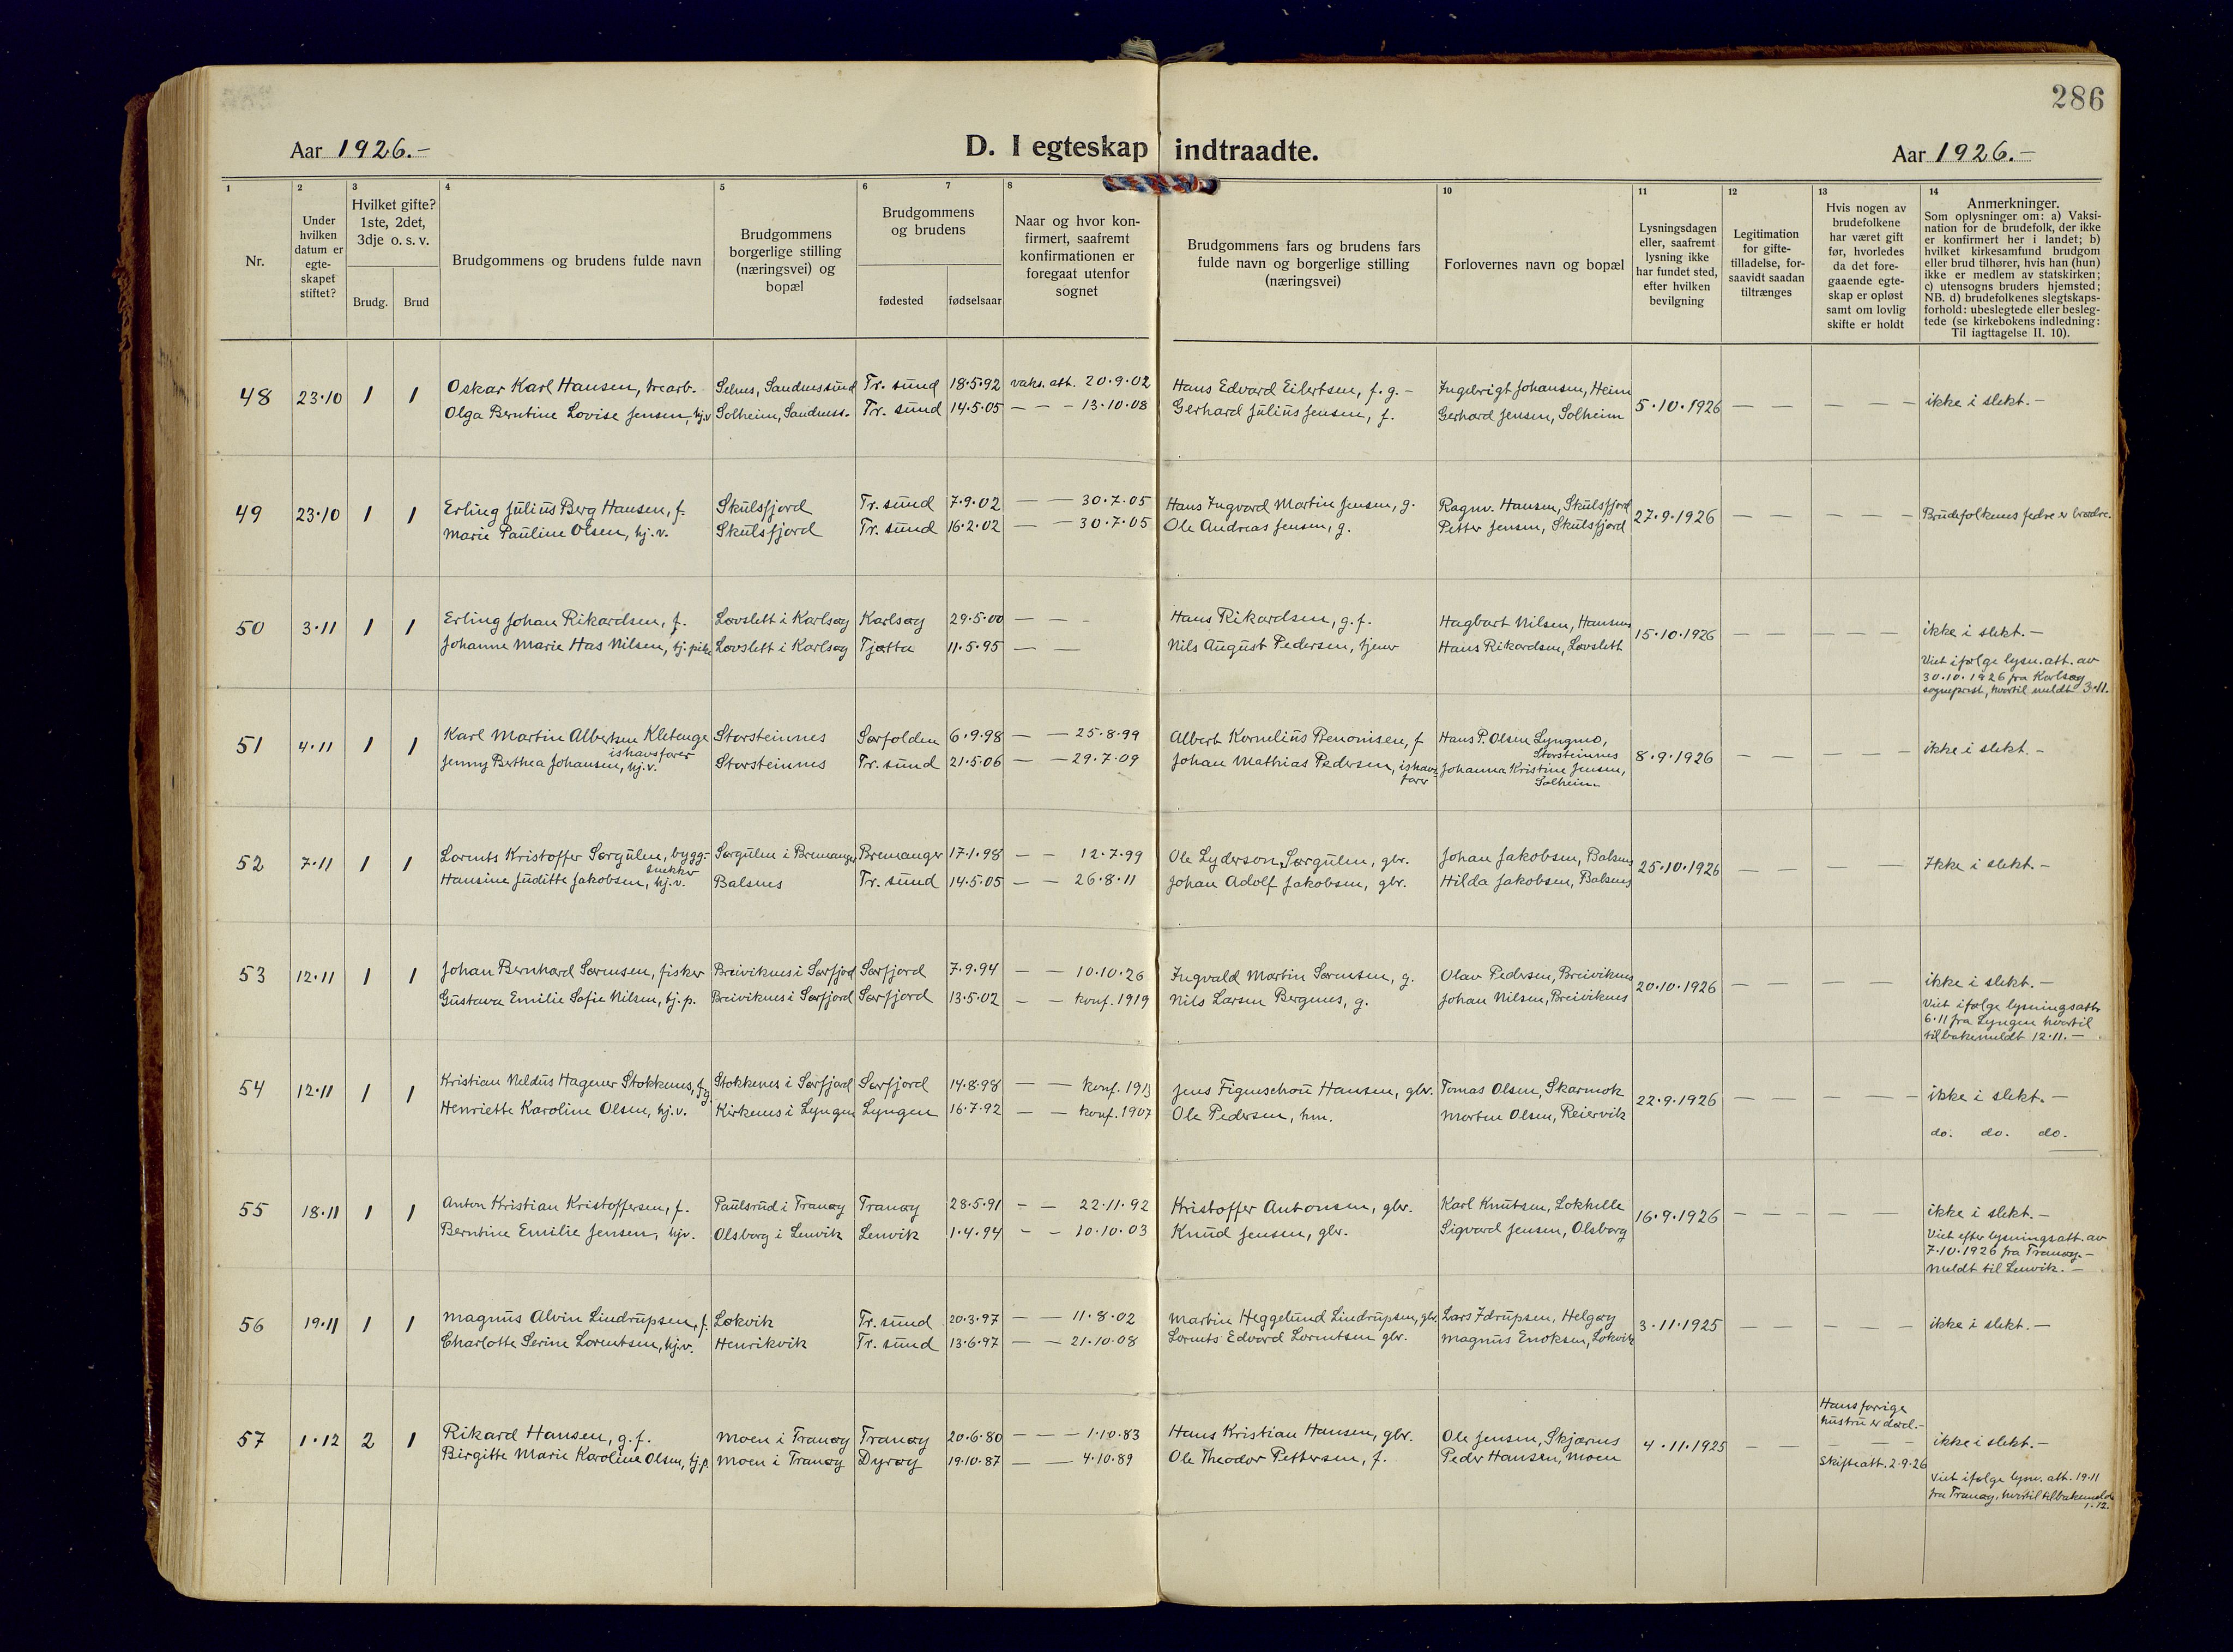 286
Aar 1926.-
D. I egteskap indtraadte.
Aar 1926.-
1 2 3 4 5 6 7 8 10 11 12 13 14
Nr.
Under hvilken datum er egte-skapet stiftet?
Hvilket gifte? 1ste, 2det, 3dje o. s. v.
Brudg. Brud
Brudgommens og brudens fulde navn
Brudgommens borgerlige stilling (næringsvei) og bopæl
Brudgommens og brudens
fødested fødselsaar
Naar og hvor kon-firmert, saafremt konfirmationen er foregaat utenfor sognet
Brudgommens fars og brudens fars fulde navn og borgerlige stilling (næringsvei)
Forlovernes navn og bopæl
Lysningsdagen eller, saafremt lysning ikke har fundet sted, efter hvilken bevilgning
Legitimation for gifte-tilladelse, for-saavidt saadan tiltrænges
Hvis nogen av brudefolkene har været gift før, hvorledes da det fore-gaaende egte-skap er opløst samt om lovlig skifte er holdt
Anmerkninger.
Som oplysninger om: a) Vaksi-nation for de brudefolk, der ikke er konfirmert her i landet; b) hvilket kirkesamfund brudgom eller brud tilhører, hvis han (hun) ikke er medlem av statskirken; c) utensogns bruders hjemsted; NB. d) brudefolkenes slegtskaps-forhold: ubeslegtede eller besleg-tede (se kirkebokens indledning: Til iagttagelse II. 10).
48 23.10 1 1 Oskar Karl Hansen, trearb. Selnes, Sandnessund Tr. sund 18.5.92 vaks. att. 20.9.02 Hans Edvard Eilertsen, f. g. - Ingebrigt Johansen, Heim 5.10.1926 — — — — — ikke i slekt.-
Olga Berntine Lovise Jensen, hj.v Solheim, Sandness. Tr. sund 14.5.05 — — — 13.10.08 Gerhard Julius Jensen, f. Gerhard Jensen, Solheim
49 23.10 1 1 Erling Julius Berg Hansen, f. Skulsfjord Tr. sund 7.9.02 — — 30.7.05 Hans Ingvard Martin Jensen, g. Ragnv. Hansen, Skulsfjord 27.9.1926 — — — — — Brudefolkenes fedre er brødre.
Marie Pauline Olsen, hj.v. Skulsfjord Tr. sund 16.2.02 — — 30.7.05 Ole Andreas Jensen, g. Petter Jensen, Skulsfjord
50 3.11 1 1 Erling Johan Rikardsen, f. Løvslett i Karlsøy Karlsøy 29.5.00 — — - Hans Rikardsen, g. f. Hagbart Nilsen, Hansnes 15.10.1926 — — — — — — ikke i slekt.-
Johanne Marie Has Nilsen, tj. pike Løvslett i Karlsøy Tjøtta 11.5.95 — — Nils August Pedersen, tjener Hans Rikardsen, Løvslett
Viet ifølge lysn. att. av
30.10.1926 fra Karlsøy
sogneprest, hvortil meldt 3.11.
51 4.11 1 1 Karl Martin Albertsen Kletenge Storsteinnes Sørfolden 6.9.98 — — 25.8.99 Albert Kornelius Benonisen, f Hans P. Olsen Lyngmo, 8.9.1926 — — — — — ikke i slekt.-
ishavsfarer Storsteinnes
Jenny Berthea Johansen, hj.v. Storsteinnes Tr. sund 21.5.06 — — 29.7.09 Johan Mathias Pedersen, ishavs- Johanna Kristine Jensen,
farer Solheim
52 7.11 1 1 Lorents Kristoffer Sørgulen, bygg- Sørgulen i Bremanger Bremanger 17.1.98 — — 12.7.99 Ole Lyderson Sørgulen, gbr. Johan Jakobsen, Balsnes 25.10.1926 — — — — Ikke i slekt.-
snekker
Hansine Juditte Jakobsen, hj.v. Balsnes Tr. sund 14.5.05 — — 26.8.11 Johan Adolf Jakobsen, gbr. Hilda Jakobsen, Balsnes
53 12.11 1 1 Johan Bernhard Sørensen, fisker Breiviknes i Sørfjord Sørfjord 7.9.94 — — 10.10.26 Ingvald Martin Sørensen, g. Olav Pedersen, Breiviknes 20.10.1926 — — — — — ikke i slekt.-
Gustava Emilie Sofie Nilsen, tj. p. Breiviknes i Sørfjord Sørfjord 13.5.02 — — konf. 1919 Nils Larsen Bergnes, g. Johan Nilsen, Breiviknes
Viet ifølge lysningsatt.
6.11 fra Lyngen hvortil
tilbakemeldt 12.11.-
54 12.11 1 1 Kristian Neldus Hagener Stokknes, f. g. Stokkenes i Sørfjord Sørfjord 14.8.98 — — konf. 1913 Jens Figenschou Hansen, gbr. Tomas Olsen, Skarmok 22.9.1926 — — — — — ikke i slekt.-
Henriette Karoline Olsen, hj.v. Kirkenes i Lyngen Lyngen 16.7.92 — — konf. 1907 Ole Pedersen, hm. Morten Olsen, Reiervik
do. do. do.
55 18.11 1 1 Anton Kristian Kristoffersen, f. Paulsrud i Tranøy Tranøy 28.5.91 - — 22.11.92 Kristoffer Antonsen, gbr. Karl Knutsen, Lokhelle 16.9.1926 — — - — — ikke i slekt.-
Berntine Emilie Jensen, hjv. Olsborg i Lenvik Lenvik 1.4.94 - — 10.10.03 Knud Jensen, gbr. Sigvard Jensen, Olsborg
Viet efter lysningsatt. av
7.10.1926 fra Tranøy.-
meldt til Lenvik.-
56 19.11 1 1 Magnus Alvin Lindrupsen, f. Løkvik Tr. sund 20.3.97 — — 11.8.02 Martin Heggelund Lindrupsen, gbr. Lars Idrupsen, Helgøy 3.11.1925 — — — — — ikke i slekt.-
Charlotte Serine Lorentsen, hj.v. Henrikvik Tr. sund 13.6.97 — — 21.10.08 Lorents Edvard Lorentsen gbr. Magnus Enoksen, Løkvik
Hans forrige
hustru er død.-
57 1.12 2 1 Rikard Hansen, g. f. Moen i Tranøy Tranøy 20.6.80 — — — 1.10.83 Hans Kristian Hansen, gbr. Ole Jensen, Skjærnes 4.11.1925 — — — — — ikke i slekt.-
Birgitte Marie Karoline Olsen, tj.p. Moen i Tranøy Dyrøy 19.10.87 — — 4.10.89 Ole Theodor Pettersen, f. Peder Hansen, Moen Skifteatt. 2.9.26
Viet ifølge lysn. att. 19.11
fra Tranøy, hvortil tilbakemeldt
1.12.